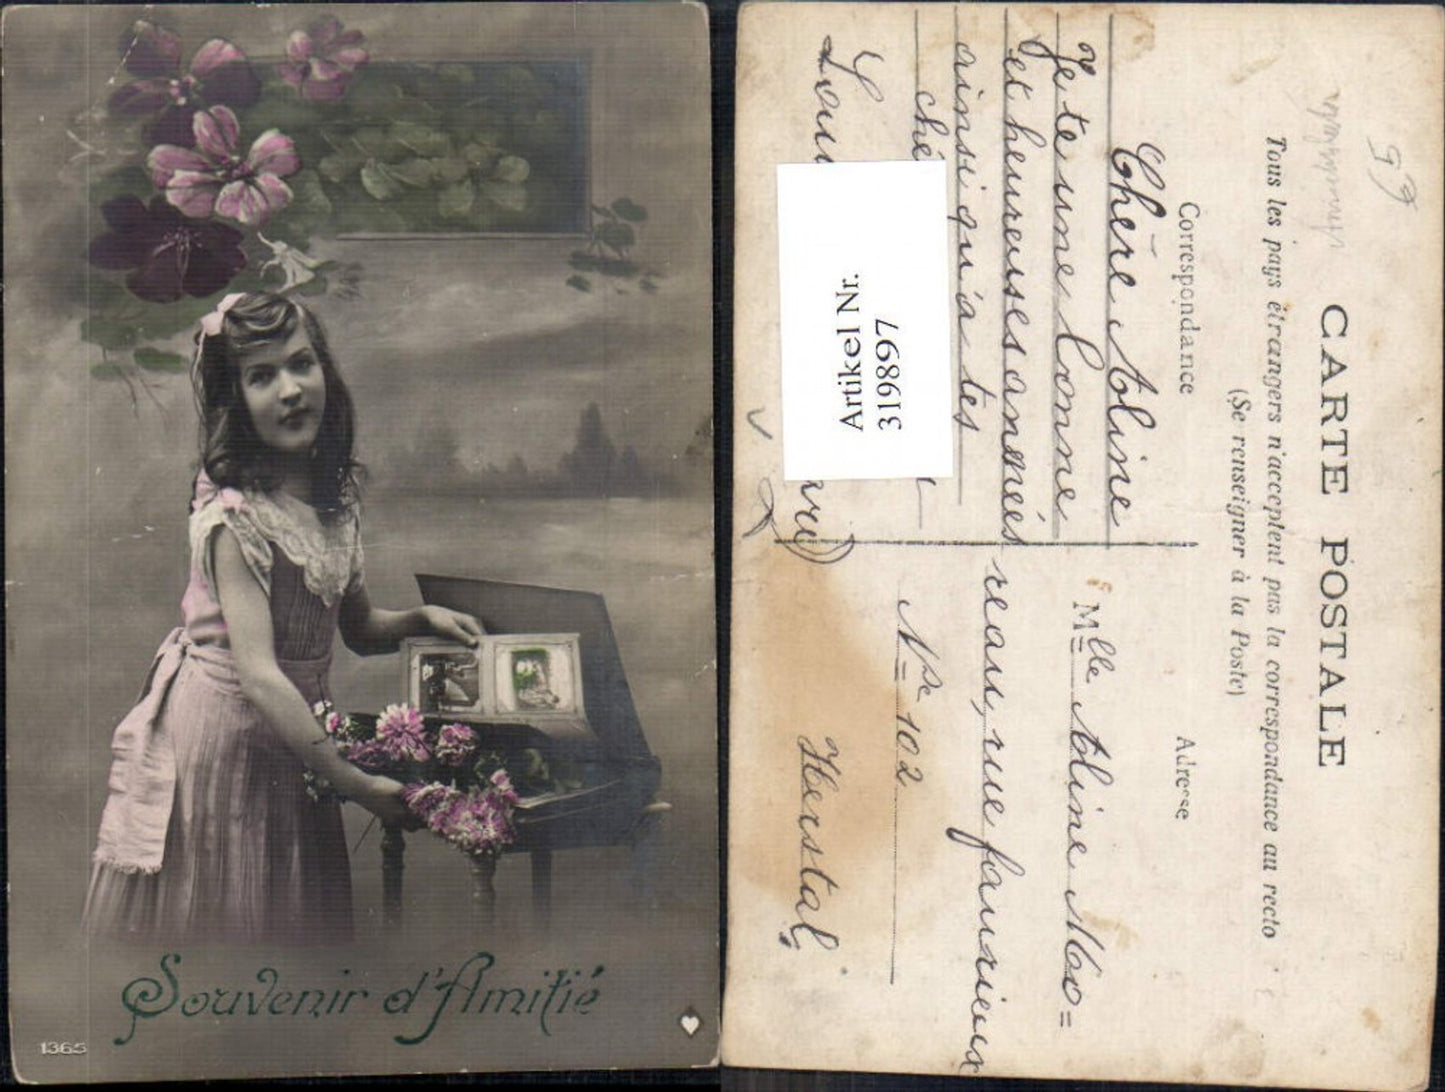 Souvenir d'Amitié
1365
CARTE POSTALE
Tous les pays étrangers n'acceptent pas la correspondance au recto
(Se renseigner à la Poste)
Correspondance
Adresse
Chère Aline
Je te une bonne
et heureuses années
ainsi qu'a tes
ché
Mlle Aline Mo=
reau, rue faurieux
No 102
Herstal
Artikel Nr.
319897